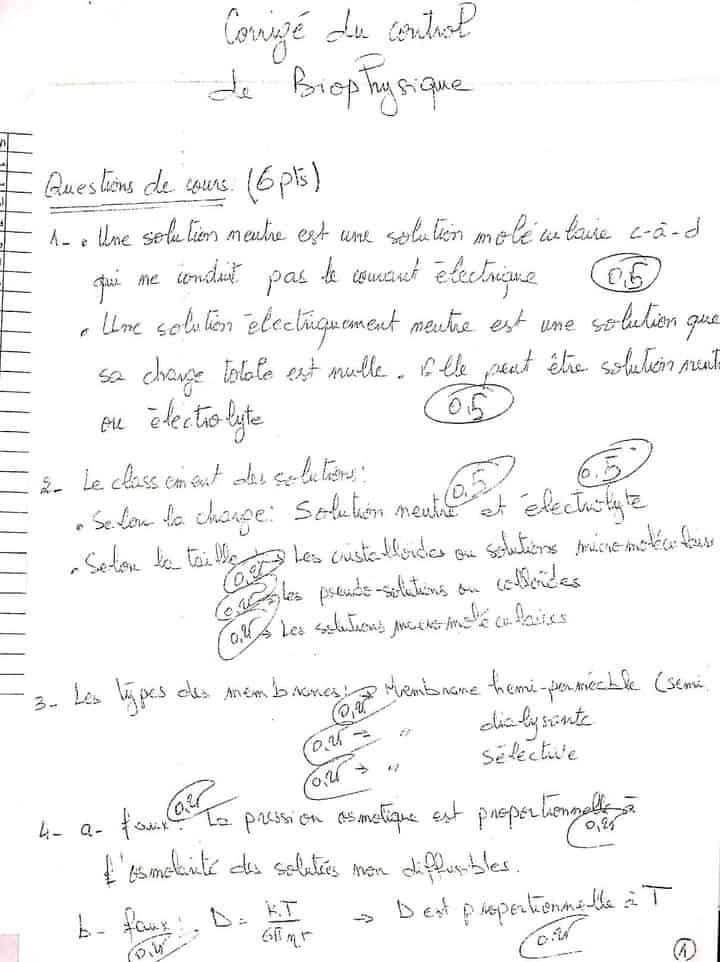 Corrigé du control
de Biophysique
Questions de cours. (6 pts)
1- • Une solution neutre est une solution moléculaire c-à-d
qui ne conduit pas le courant électrique 0,5
• Une solution électriquement neutre est une solution que
sa charge totale est nulle. Elle peut être solution neut
ou électrolyte 0,5
2- Le classement des solutions:
0,5 0,5
• Selon la charge: Solution neutre et électrolyte
• Selon la taille: → Les cristalloïdes ou solutions micromoléculaires
0,25 0,25 → Les pseudo-solutions ou colloïdes
0,25 → Les solutions macromoléculaires
3- Les types des membranes: → Membrane hemi-perméable (semi
0,25
0,25 → " dialysante
0,25 → " sélective
4- a- faux: 0,25 La pression osmotique est proportionnelle à
0,25
l'osmolarité des solutés non diffusibles.
b- faux: D = K.T / 6πηr → D est proportionnelle à T
0,25 0,25
1